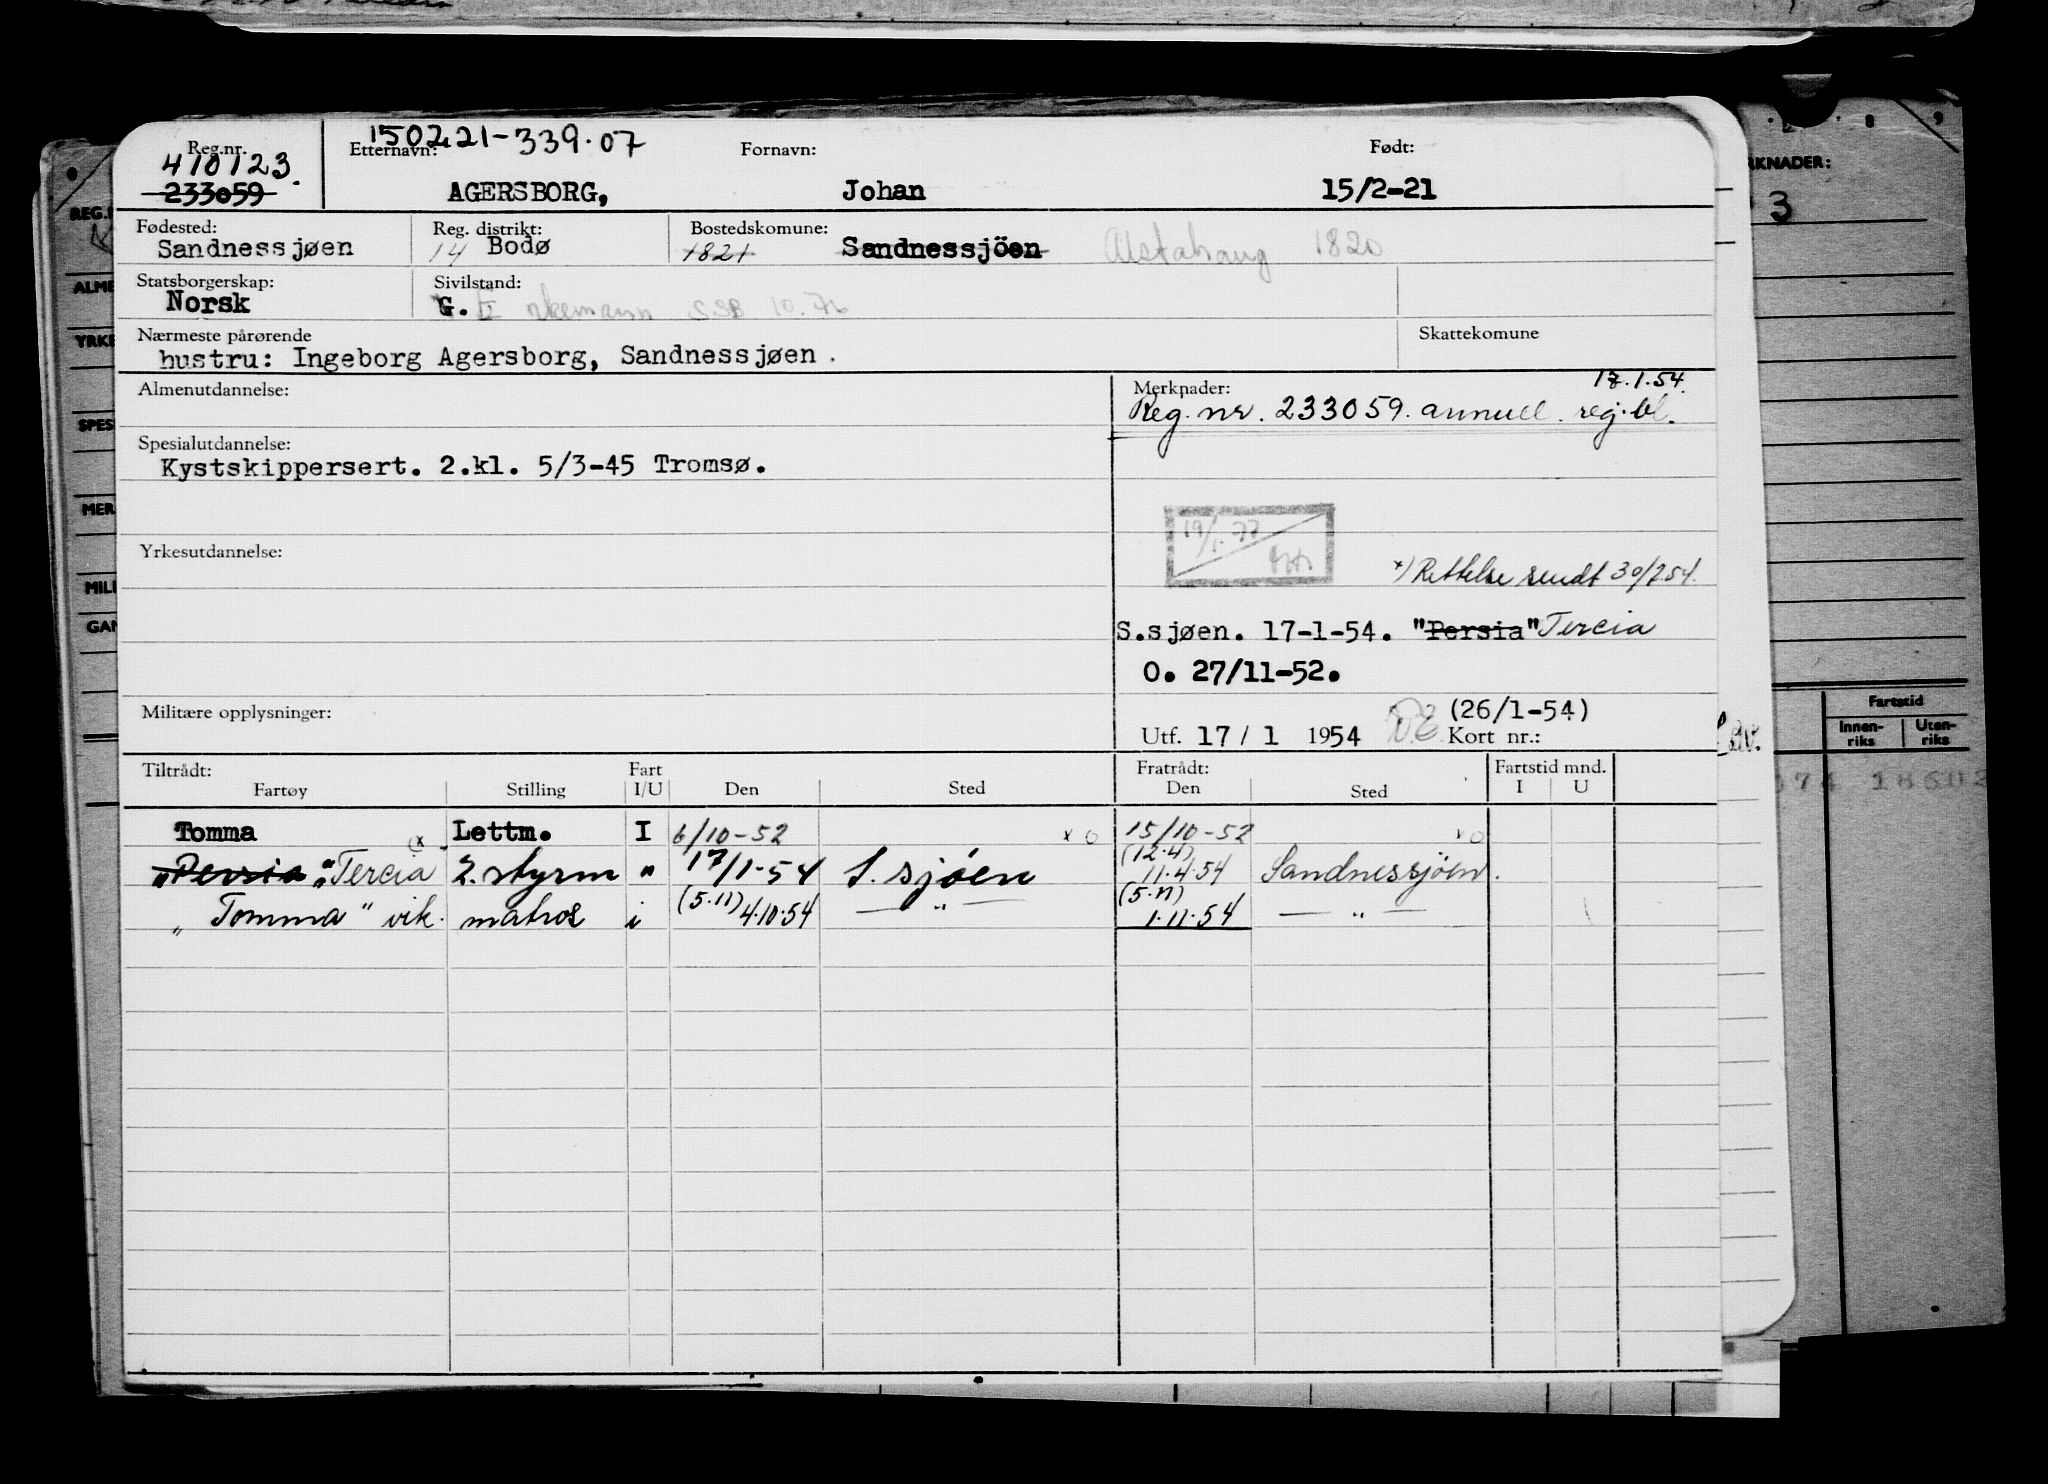 150221-339.07
Reg.nr. Etternavn: Fornavn: Født:
410123.
233059 AGERSBORG, Johan 15/2-21
Fødested: Reg. distrikt: Bostedskomune:
Sandnessjøen 14 Bodø 1821 Sandnessjöen Alstahaug 1820
Statsborgerskap: Sivilstand:
Norsk G. E nkemann SSB 10.76
Nærmeste pårørende Skattekomune
hustru: Ingeborg Agersborg, Sandnessjøen.
Almenutdannelse: Merknader: 18.1.54.
Reg. nr. 233059. annull. reg. bl.
Spesialutdannelse:
Kystskippersert. 2.kl. 5/3-45 Tromsø.
19/1-77
Yrkesutdannelse:
*) Rettelse sendt 30/7.54.
S.sjøen. 17-1-54. "Persia" Tercia
O. 27/11-52.
Militære opplysninger: (26/1-54)
Utf. 17 / 1 1954 Kort nr.:
Tiltrådt: Fart Fratrådt: Fartstid mnd.
Fartøy Stilling I/U Den Sted Den Sted I U
Tomma Lettm. I 6/10-52 x o 15/10-52 x o
"Persia" Tercia 2. styrm " 17/1-54 S. sjøen (12.4) 11.4.54 Sandnessjøen.
"Tomma" vik. matros i (5.11) 4.10.54 — " — (5.11) 1.11.54 — " —
RKNADER:
3
REG.
ALME
YRKE
SPES
MER
MILI
GAN
Fartstid
Innen-riks Uten-riks